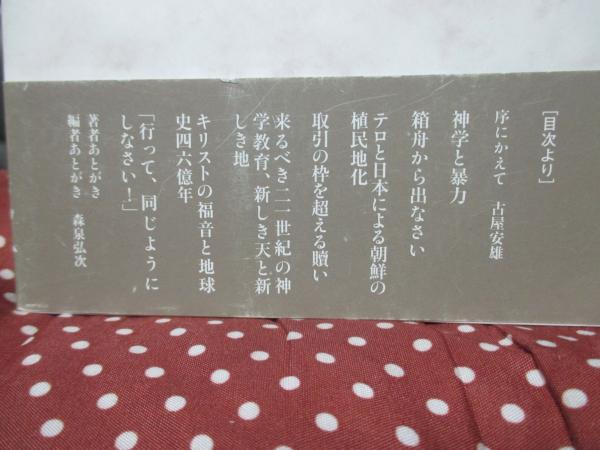 [目次より]
序にかえて 古屋安雄
神学と暴力
箱舟から出なさい
テロと日本による朝鮮の
植民地化
取引の枠を超える贖い
来るべき二一世紀の神
学教育、新しき天と新
しき地
キリストの福音と地球
史四六億年
「行って、同じように
しなさい!」
著者あとがき
編者あとがき 森泉弘次